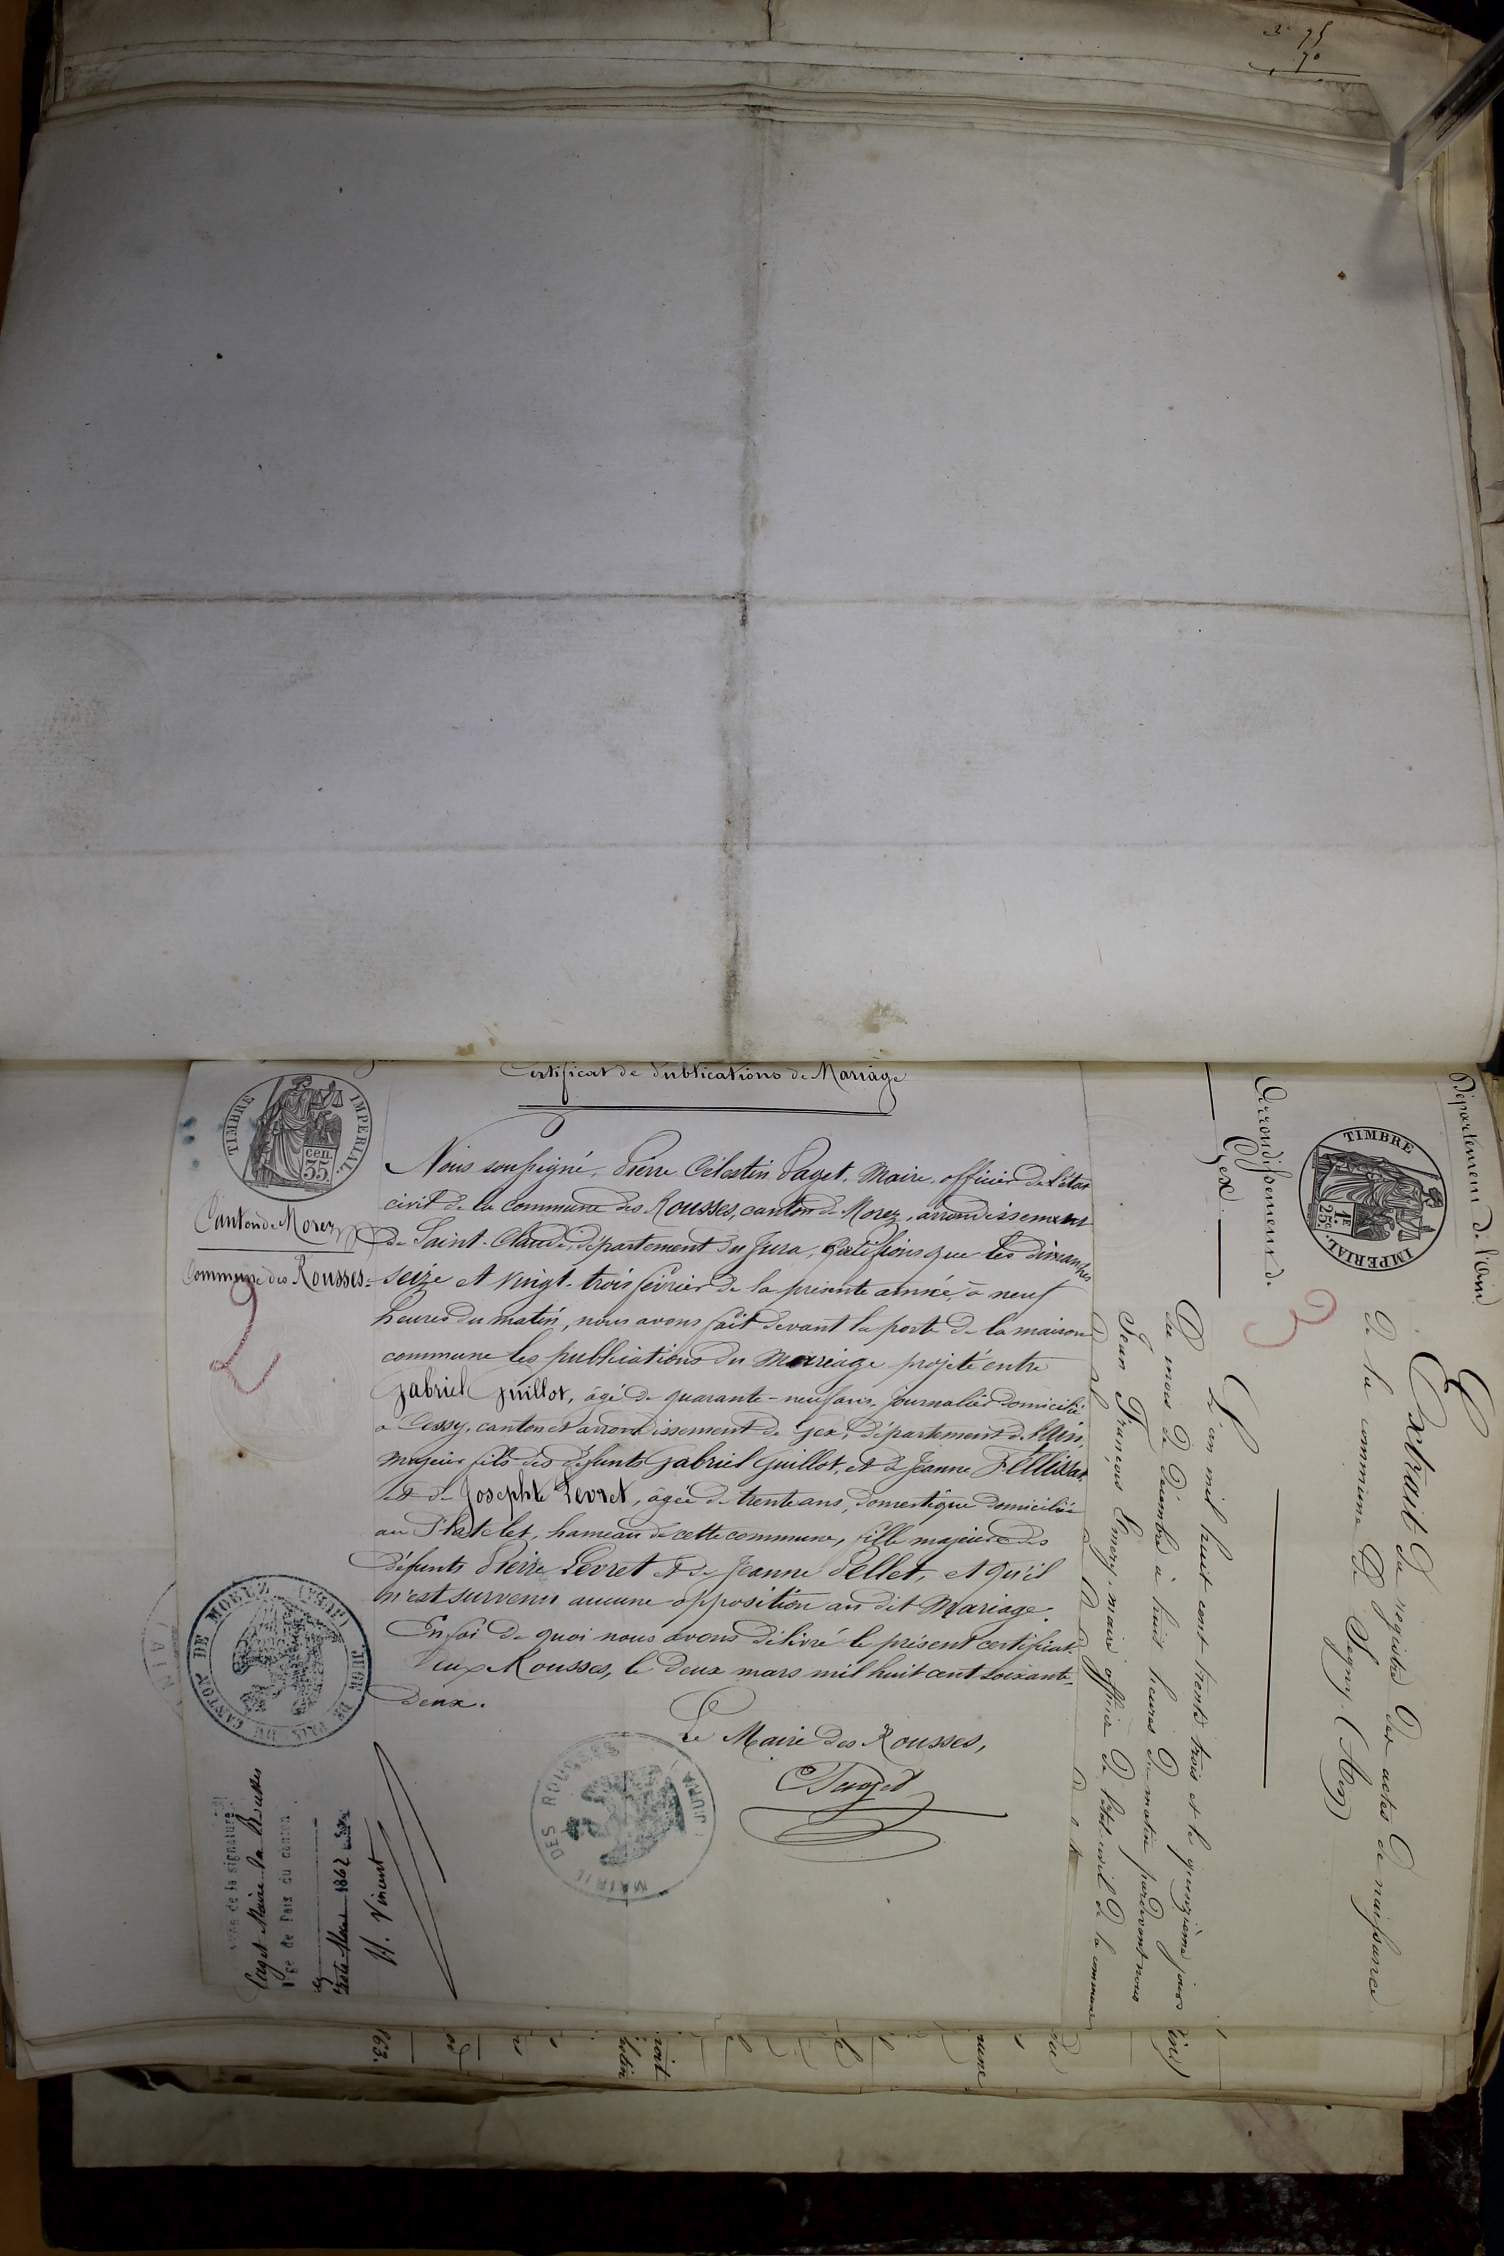 75
70
Certificat de Publications de Mariage
TIMBRE IMPERIAL
cen. 35
Canton de Morez
Commune des Rousses
2
Nous soussigné, Pierre Célestin Paget, Maire, officier de l'état
civil de la commune des Rousses, canton de Morez, arrondissement
de Saint-Claude, département du Jura, Certifions que les dimanches
seize et vingt-trois février de la présente année, à neuf
heures du matin, nous avons fait devant la porte de la maison
commune les publications du Mariage projeté entre
Gabriel Guillot, âgé de quarante-neuf ans, journalier domicilié
à Cessy, canton et arrondissement de Gex, département de l'Ain,
majeur fils des défunts Gabriel Guillot, et de Jeanne
et de Josephte Levret, âgée de trente ans, domestique domiciliée
au Platelet, hameau de cette commune, fille majeure des
défunts Pierre Levret et de Jeanne Pellet, et qu'il
n'est survenu aucune opposition au dit Mariage.
En foi de quoi nous avons délivré le présent certificat.
Aux Rousses, le deux mars mil huit cent soixante-
deux.
Le Maire des Rousses,
Paget
MAIRIE DES ROUSSES (JURA)
JUGE DE PAIX DU CANTON DE MOREZ (JURA)
de la signature
Paget Maire des Rousses
Juge de Paix du canton
1862
Vincent
Département de l'Ain
TIMBRE IMPERIAL
1F 25c
Arrondissement de
Gex
3
Extrait du registre des actes de naissance
de la commune de Segny (Ain)
L'an mil huit cent trente trois et le quinzième jour
du mois de Décembre à huit heures du matin pardevant nous
Jean François Emery, maire officier de l'état civil de la commune
863.